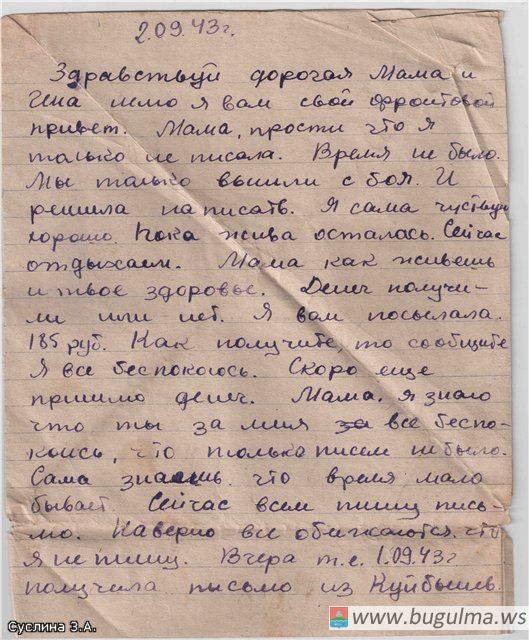 2.09.43г.
Здравствуй дорогая Мама и
Гена шлю я вам свой фронтовой
привет. Мама, прости что я
только не писала. Время не было.
Мы только вышли с боя. И
решила написать. Я сама чуствую
хорошо. Пока жива осталась. Сейчас
отдыхаем. Мама как живешь
и твое здоровье. Денег получи-
ли или нет. Я вам посылала.
185 руб. Как получите, то сообщите
Я все беспокоюсь. Скоро еще
пришлю денег. Мама. я знаю
что ты за меня за все беспо-
коись, что только писем не было.
Сама знаешь. что время мало
бывает. Сейчас всем пишу пись-
мо. Наверно все обижаются. что
я не пишу. Вчера т.е. 1.09.43г
получила письмо из Куйбышев.
Суслина З.А.
www.bugulma.ws